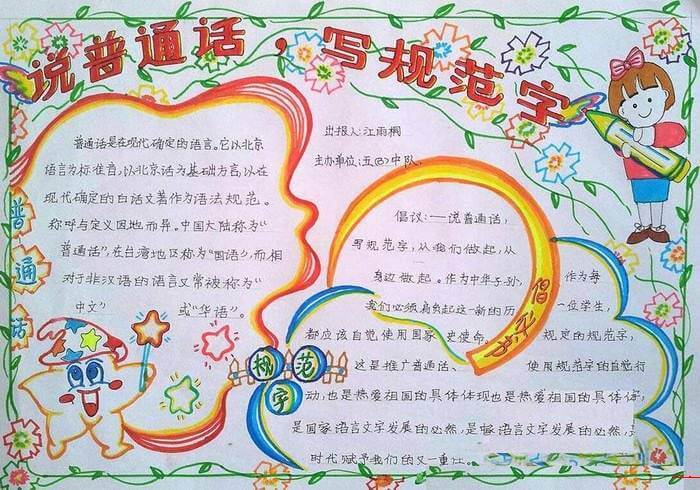 说普通话，写规范字
普通话
普通话是在现代确定的语言。它以北京
语言为标准音，以北京话为基础方言，以在
现代确定的白话文著作为语法规范。
称呼与定义因地而异。中国大陆称为“
普通话”，在台湾地区称为“国语”，而相
对于非汉语的语言又常被称为“
中文” 或“华语”。
出报人：江雨桐
主办单位：五(3)中队
规范字
倡议：——说普通话，
写规范字，从我们做起，从
身边做起。作为中华子孙，作为每
我们必须肩负起这一新的历 一位学生，
都应该自觉使用国家 史使命。 规定的规范字，
这是推广普通话、 使用规范字的自觉行
动，也是热爱祖国的具体体现也是热爱祖国的具体体
是国家语言文字发展的必然，是 语言文字发展的必然，
时代赋予我们的又一重任。